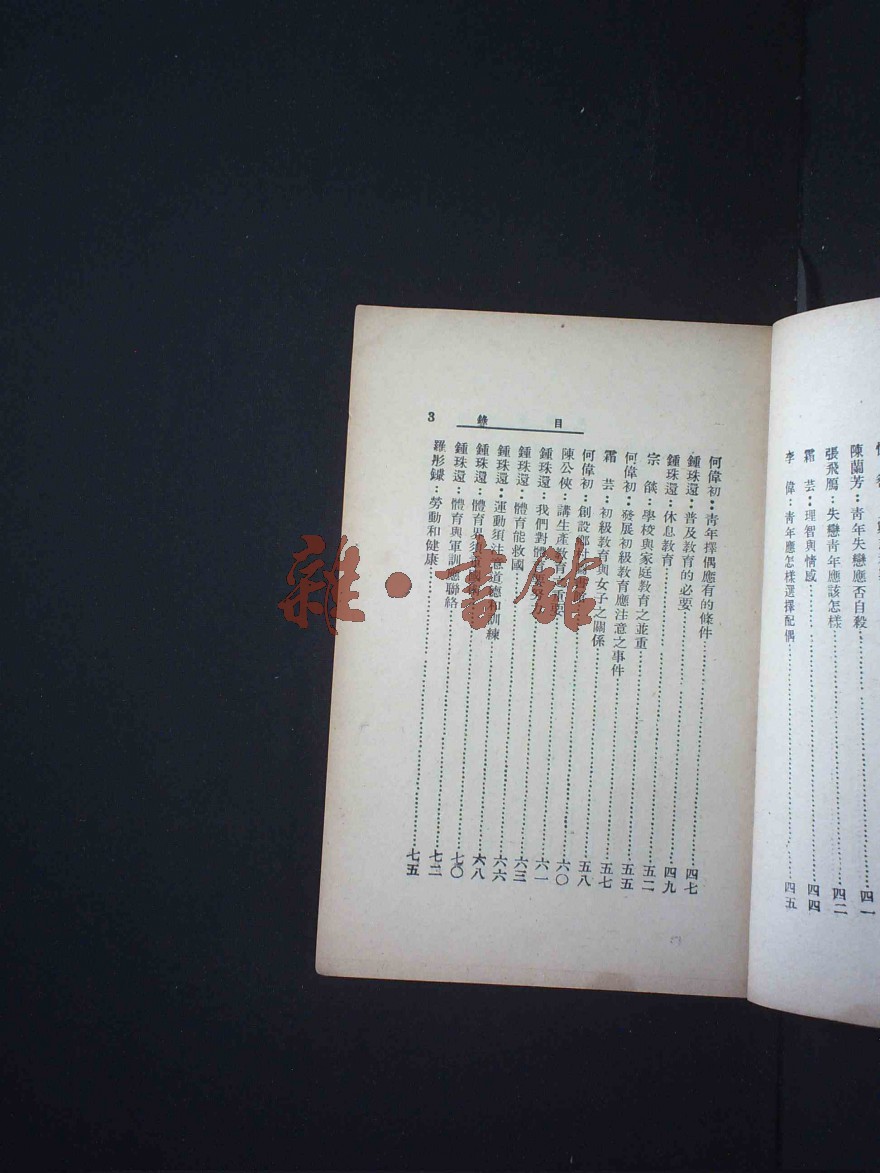 陳蘭芳：青年失戀應否自殺……四一
張飛鴈：失戀青年應該怎樣……四二
霜　芸：理智與情感……四四
李　偉：青年應怎樣選擇配偶……四五
目錄 3
何偉初：青年擇偶應有的條件……四七
鍾珠還：普及教育的必要……四九
鍾珠還：休息教育……五二
宗　錟：學校與家庭教育之並重……五五
何偉初：發展初級教育應注意之事件……五七
霜　芸：初級教育與女子之關係……五八
何偉初：創設鄉村……六〇
陳公俠：講生產教育重要……六一
鍾珠還：我們對體育要努力……六三
鍾珠還：體育能救國……六六
鍾珠還：運動須注意道德和訓練……六八
鍾珠還：體育界須……七〇
鍾珠還：體育與軍訓應聯絡……七二
羅彤鑅：勞動和健康……七五
雜·書館